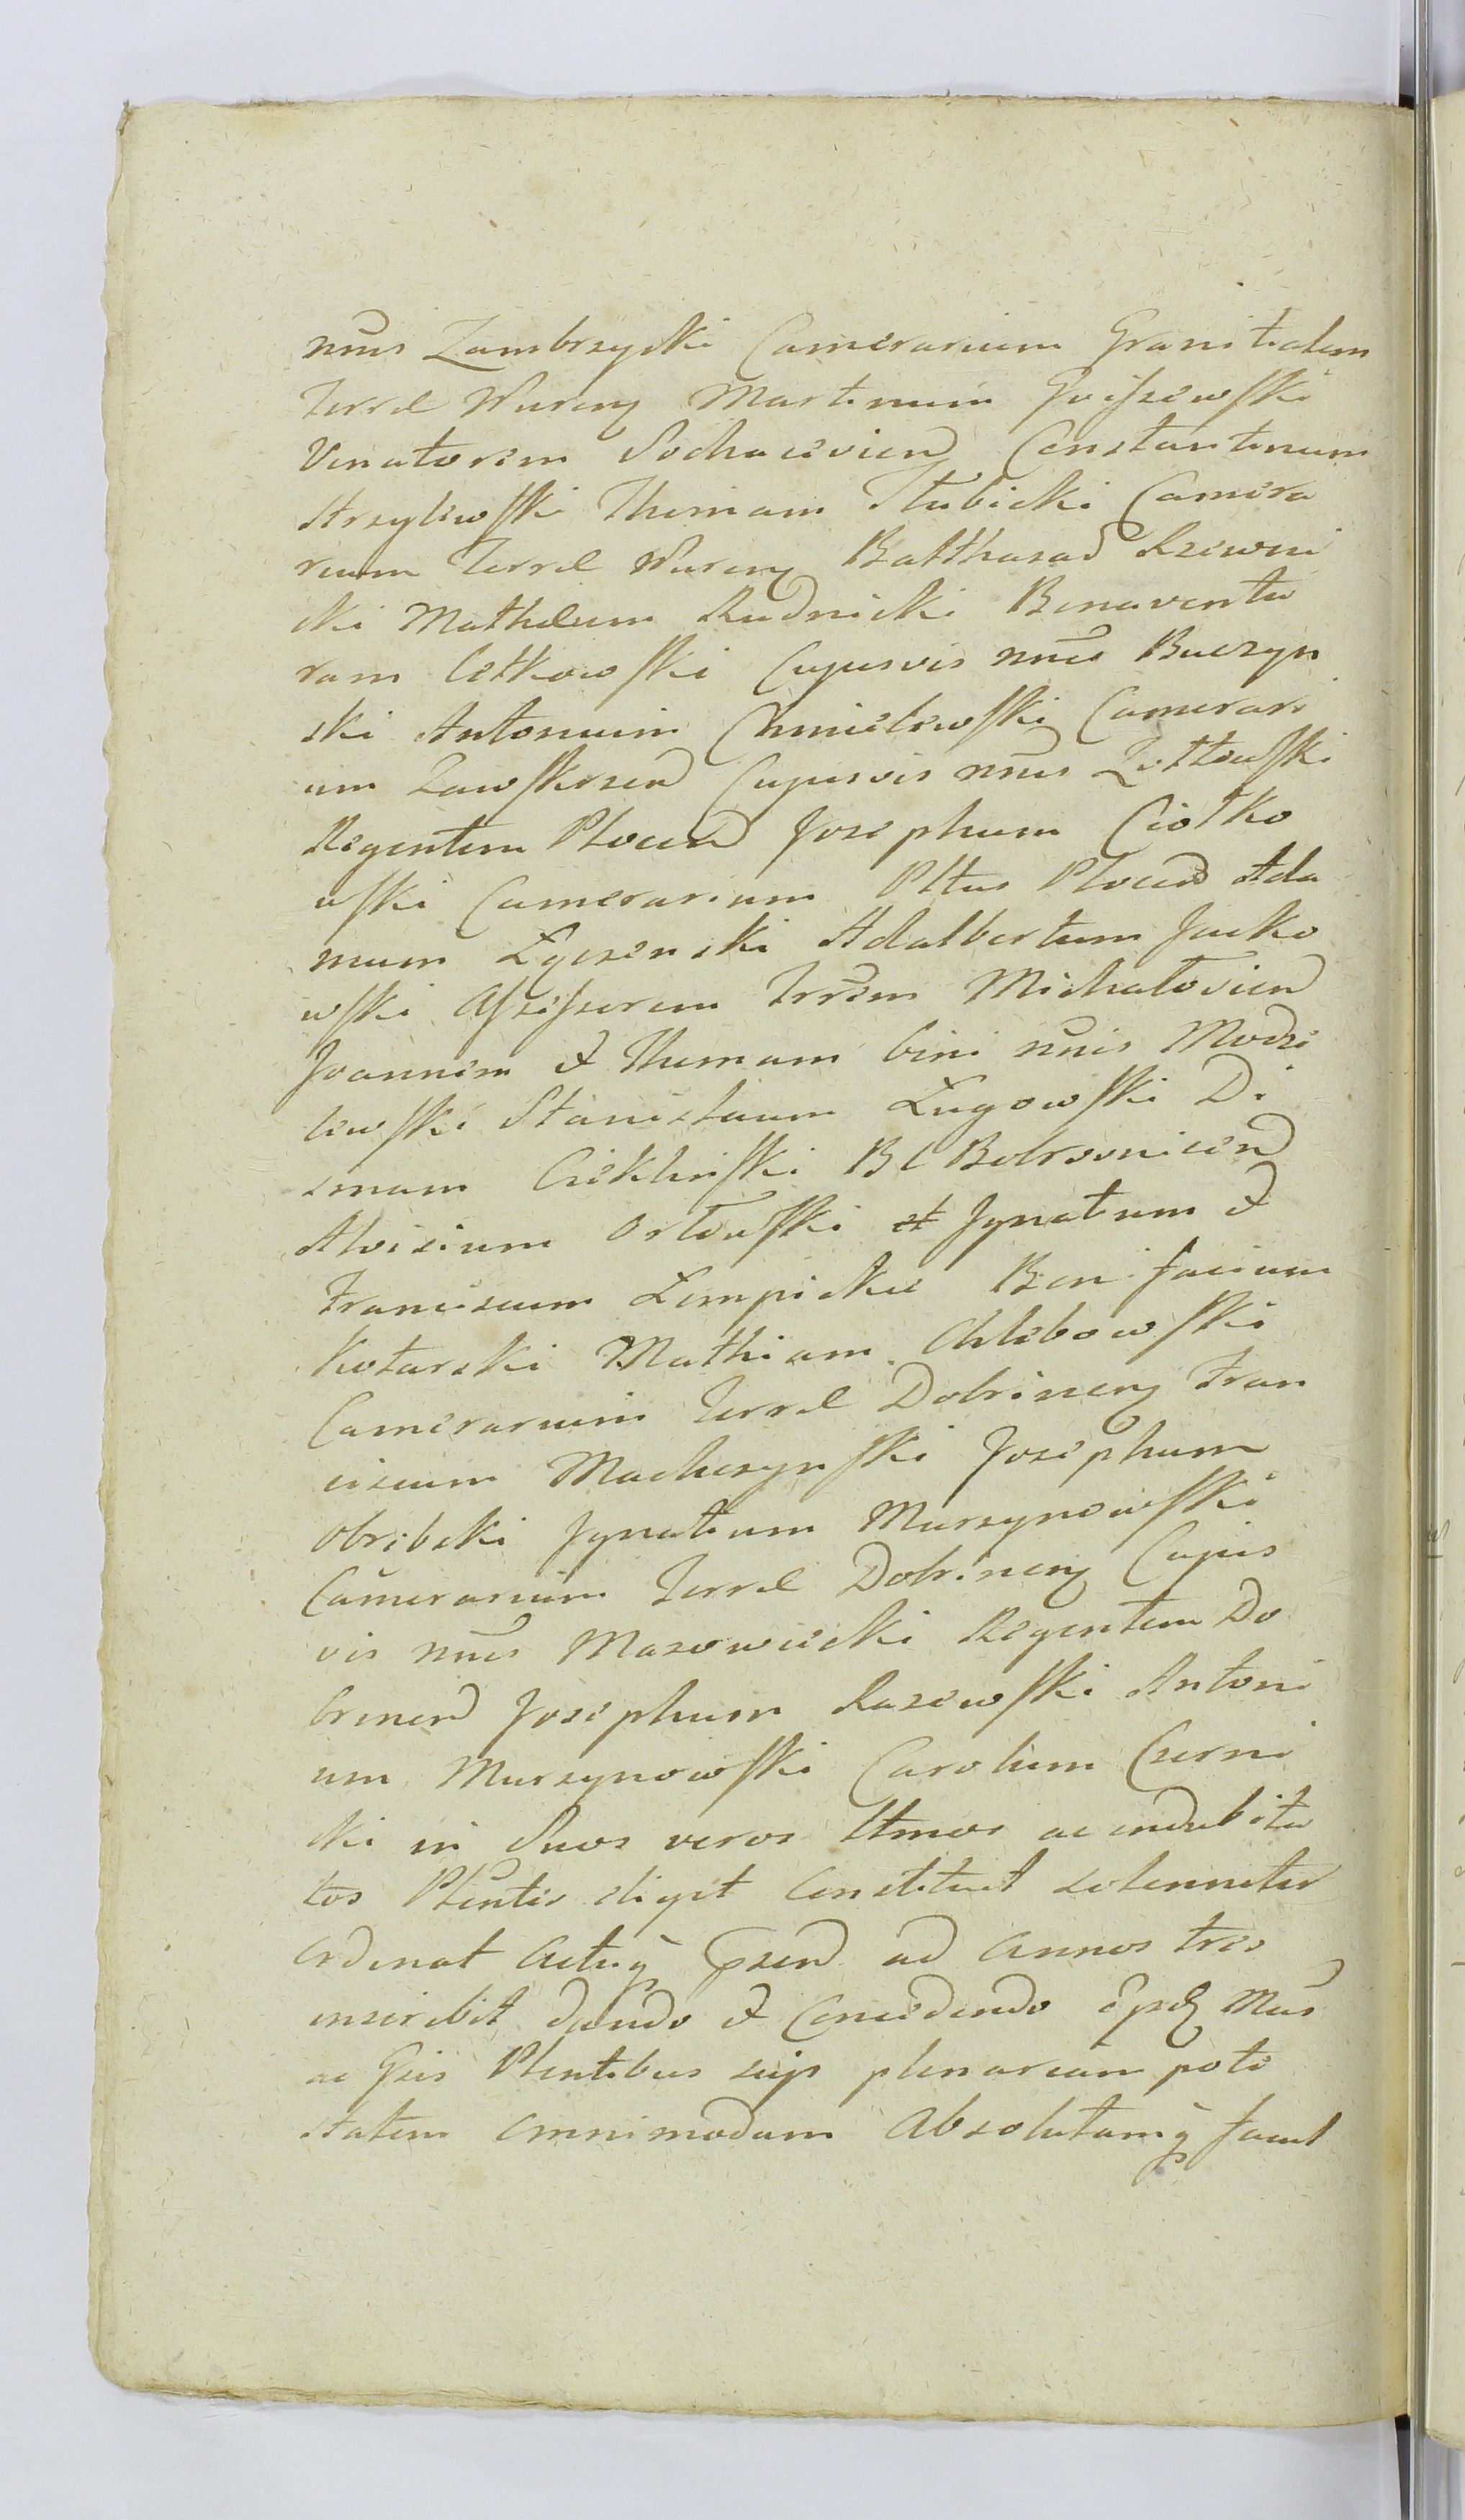 nms Zambrzycki Camerarium Granitialem
Terræ Vurenẹ Martinum Gvißewski
Venatorem Sochacevien Constantinum
Strzylewski Thomam Słubicki Camera
rium Terræ Vuren Balthasar Rzewni
cki Mathæum Rudnicki Bonaventu
ram Cetkowski Cujusvis nmis Buczyn
ski Antonium Chmielewski Camerari
um Zawskrzen Cujusvis nmis Zołtowski
Regentem Plocen Josephum Ciołko
wski Camerarium Pltus Plocen Ada
mum Łyczenski Adalbertum Jacko
wski Assessorem Trrem Michałovien
Joannem et Thomam bini nmis Modze
lewski Stanislaum Ługowski Di
smam Cieklinski BC Bobrownicen
Aloisium Orłowski et Jgnatium et
Franciscum Łempickie Bonifacium
Kotarski Mathiam Chlebowski
Camerarium Terræ Dobrinen Fran
ciscum Machczynski Josephum
Obrębski Jgnatium Murzynowski
Camerarium Terræ Dobrinen Cujus
vis nmis Mazowiecki Regentem Do
brinen Josephum Razewski Antoni
um Murzynowski Carolum Czerni
cki in Suos veros Ltmos ac indubita
tos Plentes eligit Constituit solenniter
ordinat Actuq̃ ad Annos tres
inscribit dando et Concedendo Mns
ac Gsis Plentibus suis plenariam pote
statem omnimodam Absolutamq̃ facul